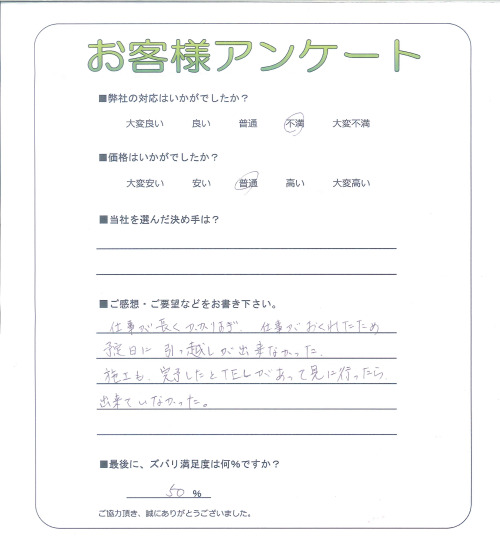 お客様アンケート
■弊社の対応はいかがでしたか？
大変良い 良い 普通 不満 大変不満
■価格はいかがでしたか？
大変安い 安い 普通 高い 大変高い
■当社を選んだ決め手は？
■ご感想・ご要望などをお書き下さい。
仕事が長くかかりすぎ、仕事がおくれたため
予定日に引っ越しが出来なかった、
施工も、完了したとTELがあって見に行ったら、
出来ていなかった。
■最後に、ズバリ満足度は何％ですか？
50 ％
ご協力頂き、誠にありがとうございました。